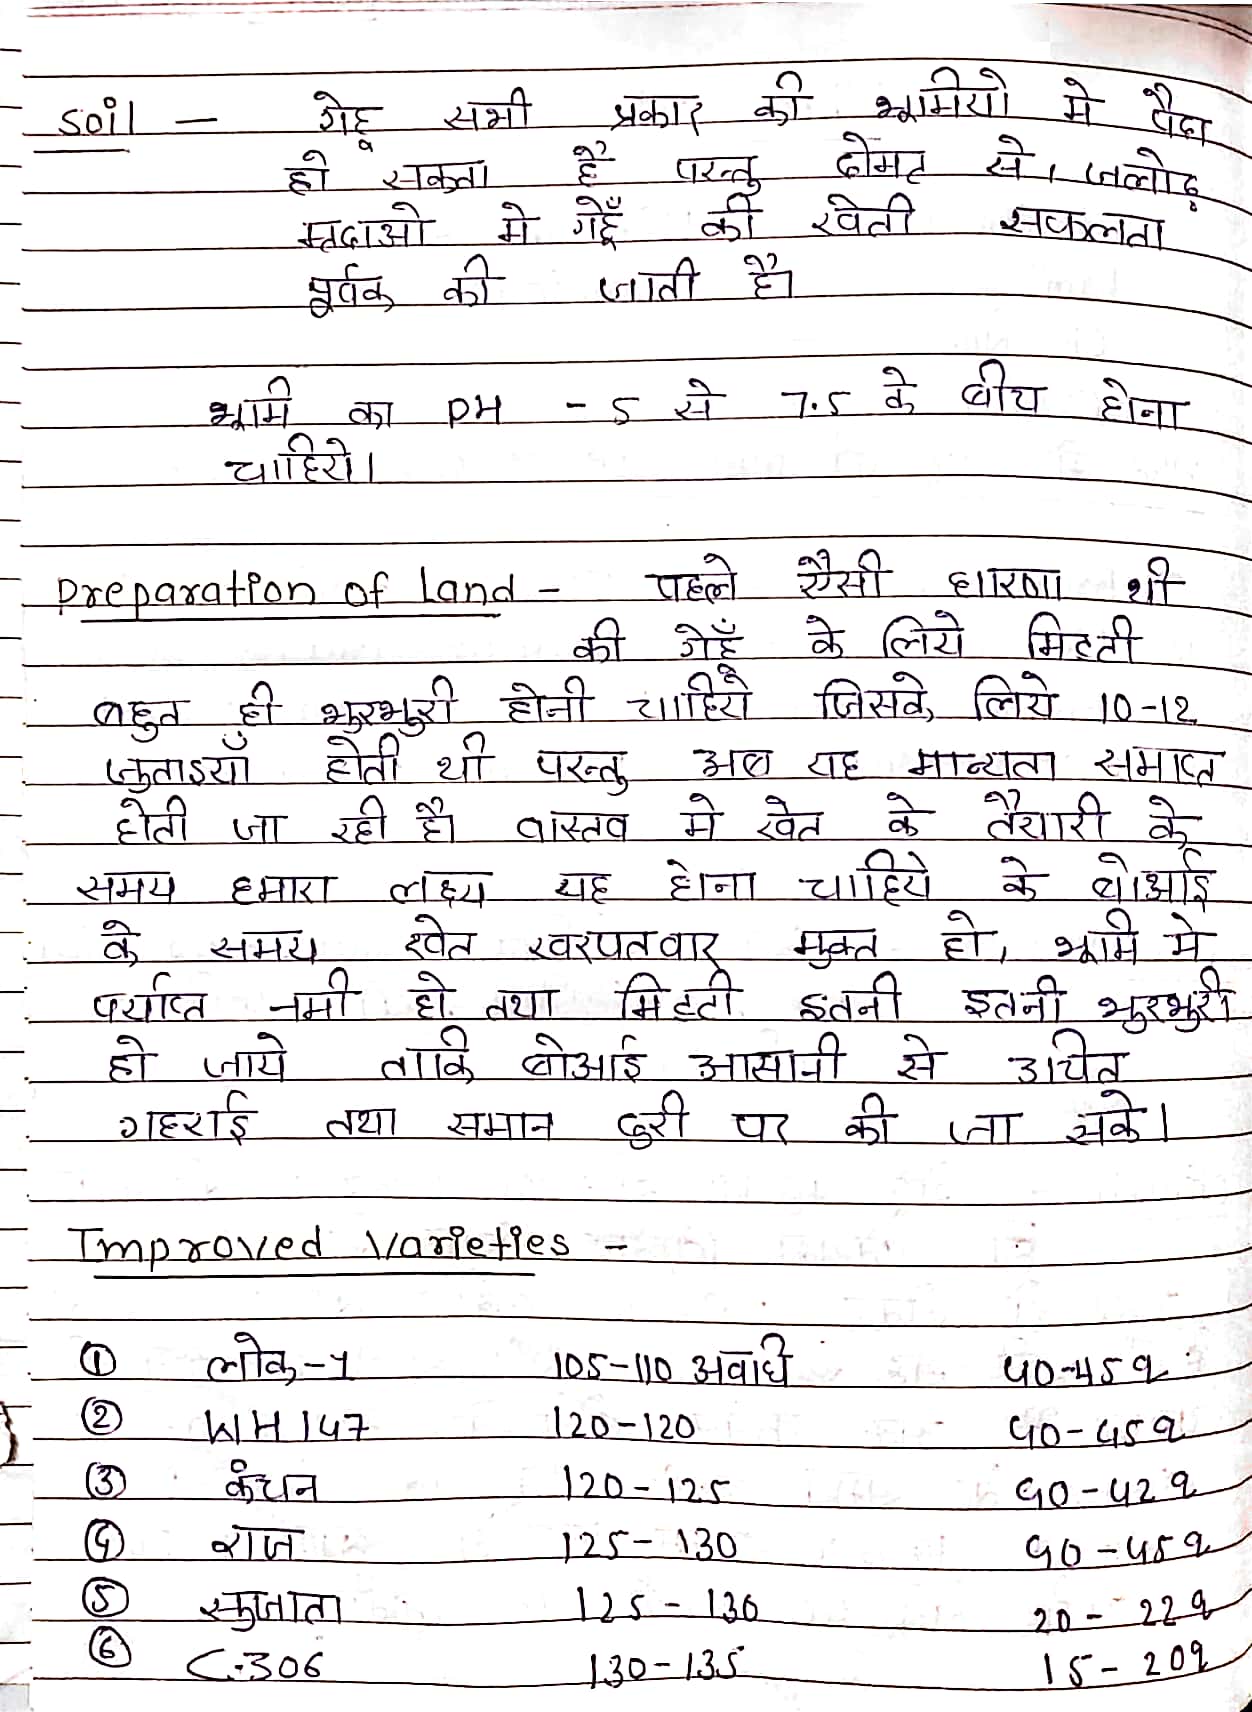 Soil - गेहू सभी प्रकार की भूमियो मे पैदा
हो सकता है परन्तु दोमट से, जलोढ़
मृदाओ मे गेहूँ की खेती सफलता
पूर्वक की जाती है।
भूमि का PH - 5 से 7.5 के बीच होना
चाहिये।
Preparation of Land - पहले ऐसी धारणा थी
की गेहूँ के लिये मिट्टी
बहुत ही भुरभुरी होनी चाहिये जिसके लिये 10-12
जुताइयाँ होती थी परन्तु अब यह मान्यता समाप्त
होती जा रही है। वास्तव मे खेत के तैयारी के
समय हमारा लक्ष्य यह होना चाहिये के बोआई
के समय खेत खरपतवार मुक्त हो, भूमि मे
पर्याप्त नमी हो तथा मिट्टी इतनी इतनी भुरभुरी
हो जाये ताकि बोआई आसानी से उचित
गहराई तथा समान दुरी पर की जा सके।
Improved Varieties -
① लोक-1 105-110 अवधि 40-45q
② WH 147 120-120 40-45q
③ कंचन 120-125 40-42q
④ राज 125-130 40-45q
⑤ सुजाता 125-130 20-22q
⑥ C-306 130-135 15-20q